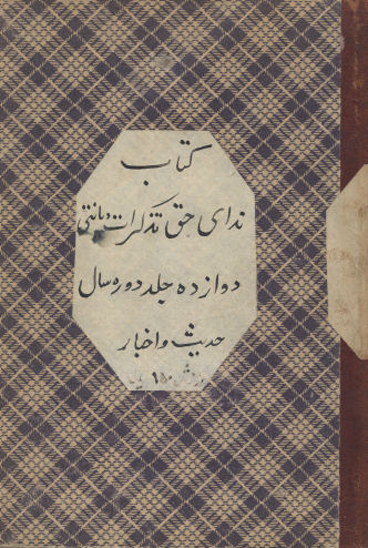 کتاب
ندای حق تذکرات دیانتی
دوازده جلد دوره سال
حدیث و اخبار
۱۵۰